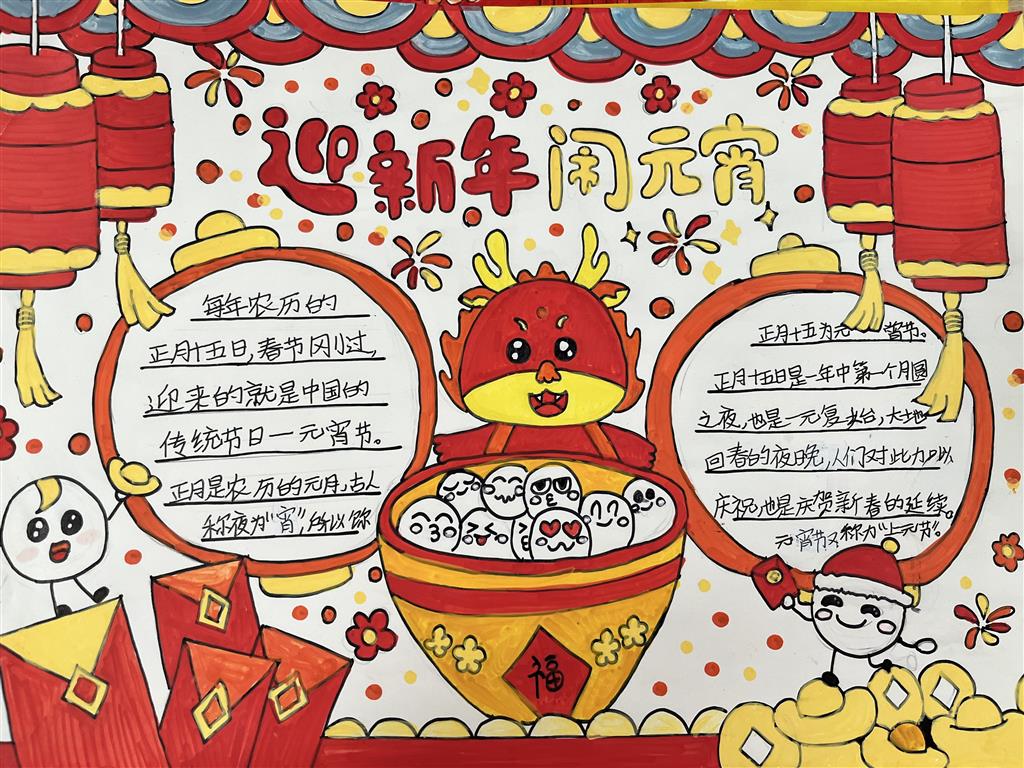 迎新年 闹元宵
每年农历的
正月十五日,春节刚过,
迎来的就是中国的
传统节日一元宵节。
正月是农历的元月,古人
称夜为“宵”,所以称
正月十五为元 宵节。
正月十五日是一年中第一个月圆
之夜,也是一元复始,大地
回春的夜晚,人们对此加以
庆祝,也是庆贺新春的延续。
元宵节又称为“上元节”。
福